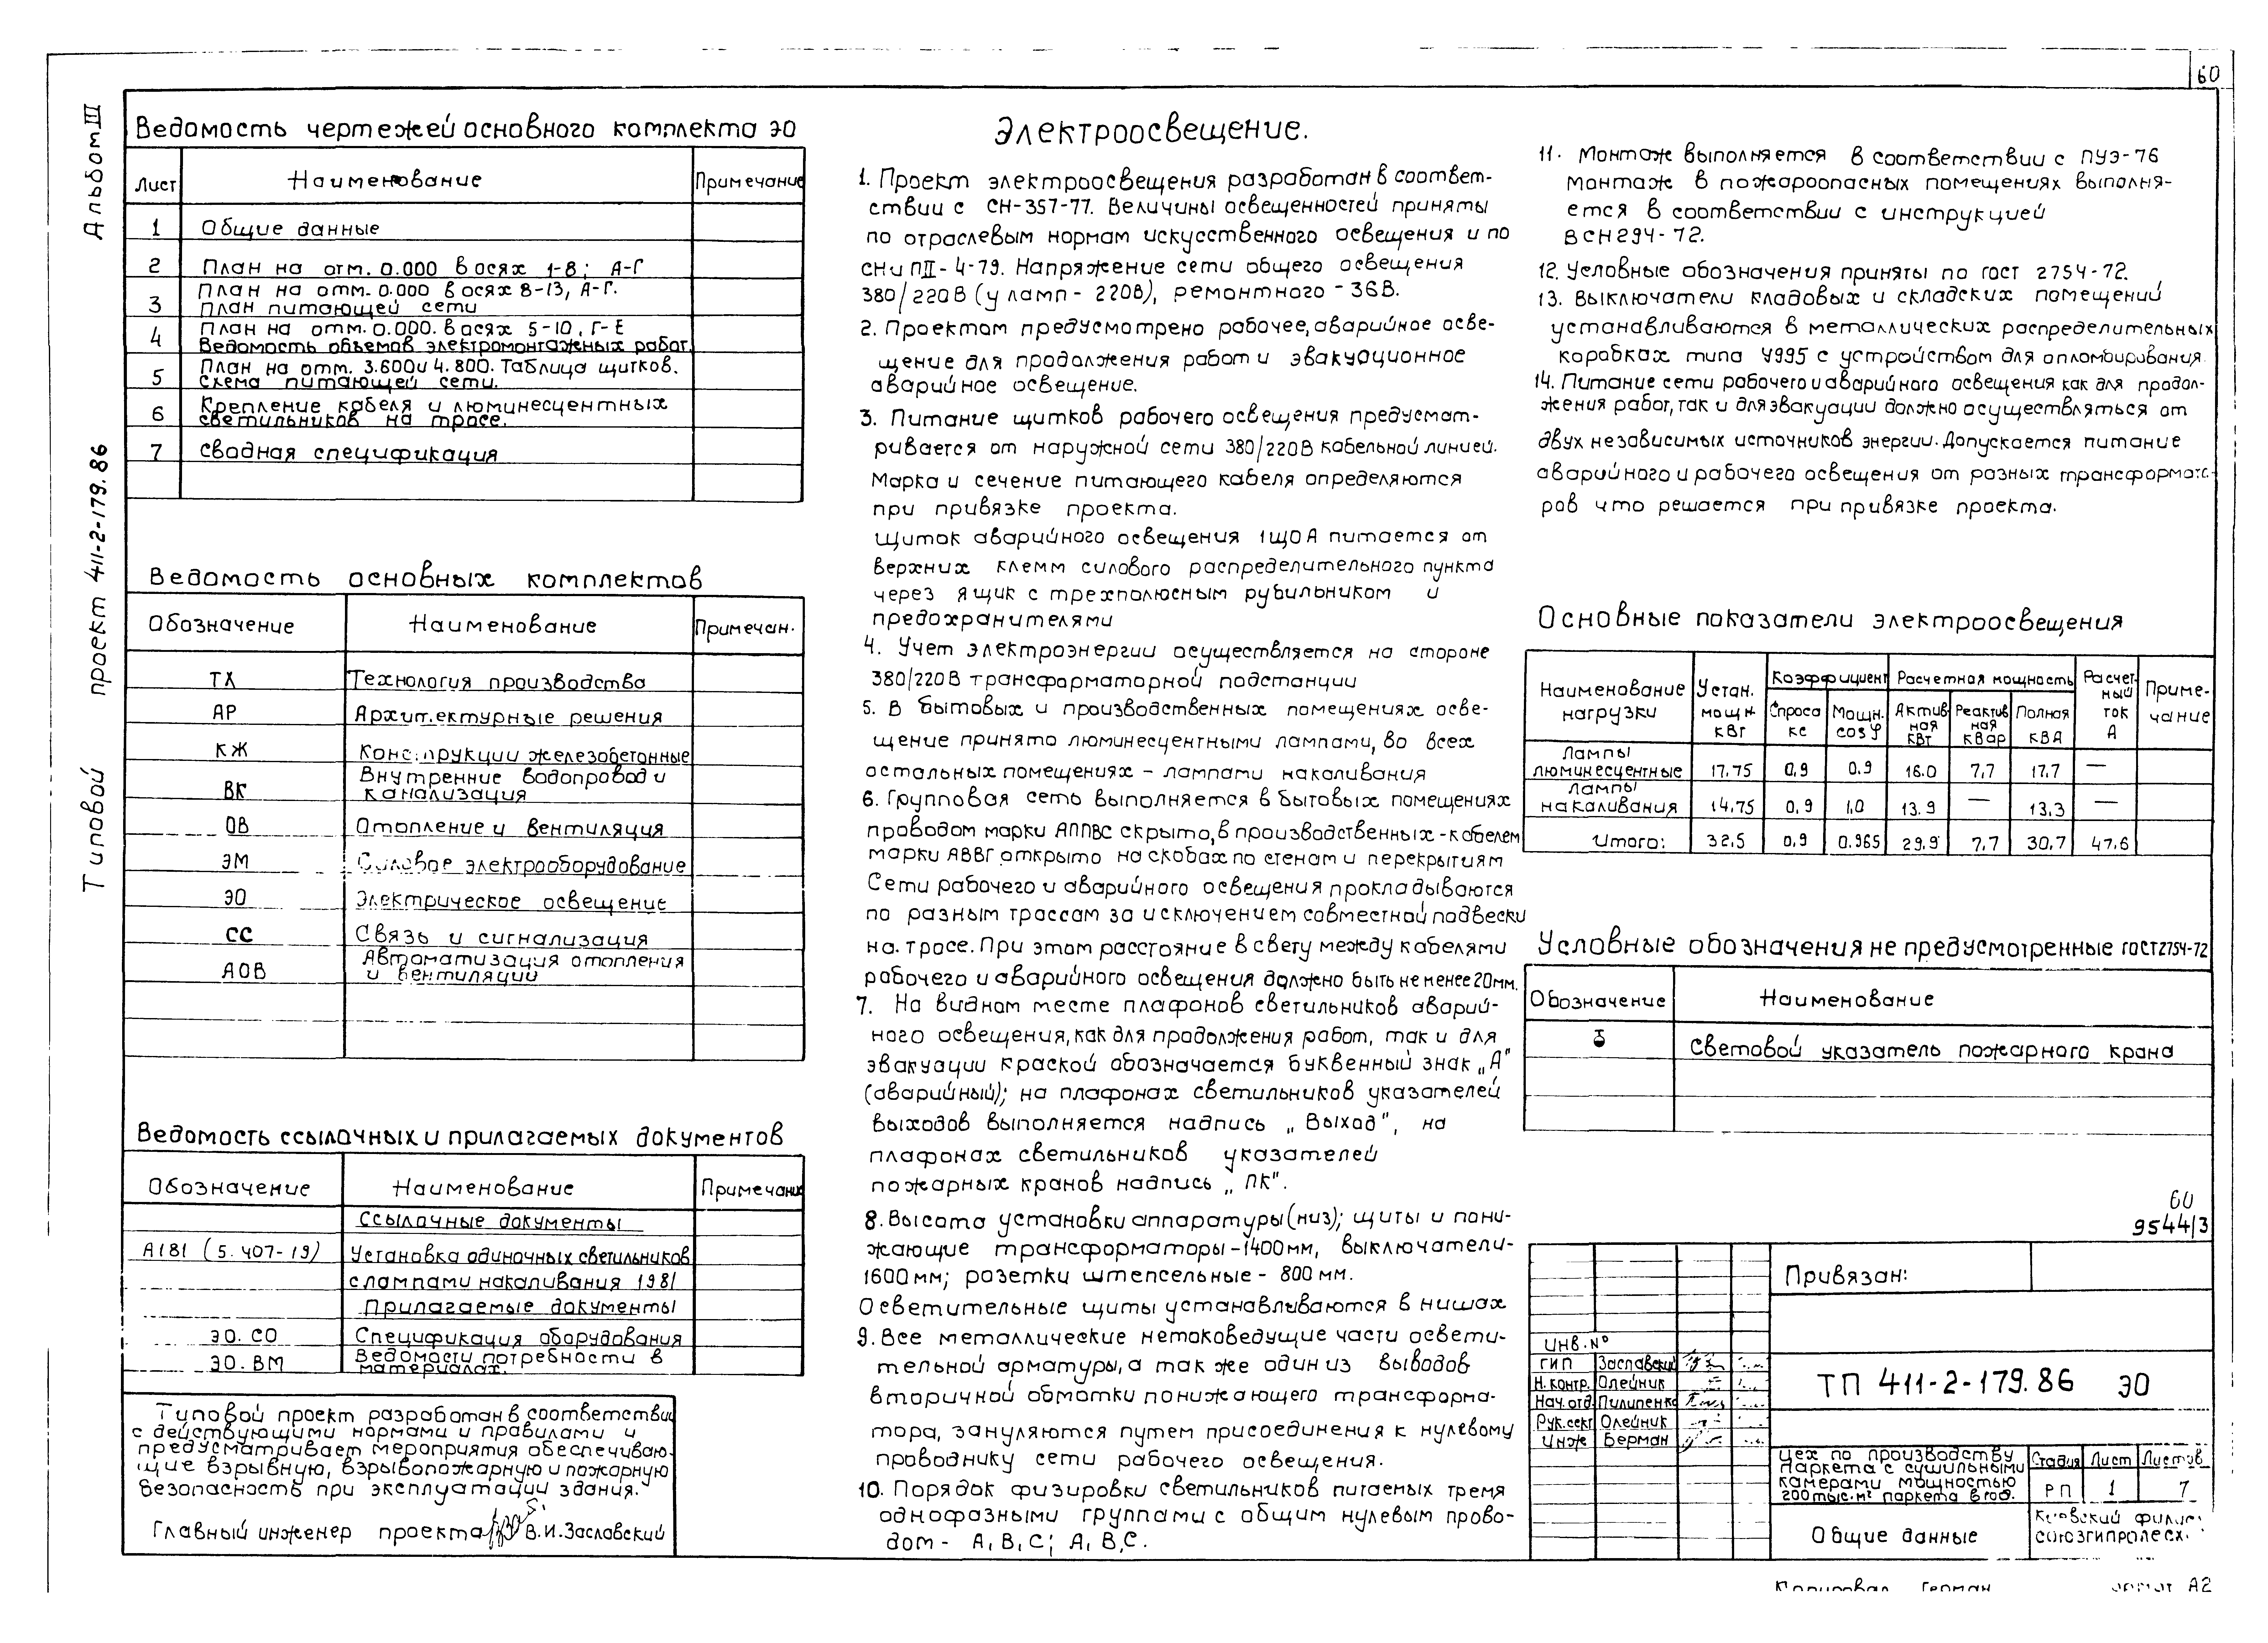 60
Альбом III
Типовой проект 411-2-179.86
Ведомость чертежей основного комплекта ЭО
Лист Наименование Примечание
1 Общие данные
2 План на отм. 0.000 в осях 1-8; А-Г
3 План на отм. 0.000 в осях 8-13, А-Г.
План питающей сети
4 План на отм. 0.000. в осях 5-10, Г-Е
Ведомость объемов электромонтажных работ.
5 План на отм. 3.600 и 4.800. Таблица щитков.
Схема питающей сети.
6 Крепление кабеля и люминесцентных
светильников на тросе.
7 Сводная спецификация
Ведомость основных комплектов
Обозначение Наименование Примечан.
ТХ Технология производства
АР Архитектурные решения
КЖ Конструкции железобетонные
ВК Внутренние водопровод и
канализация
ОВ Отопление и вентиляция
ЭМ Силовое электрооборудование
ЭО Электрическое освещение
СС Связь и сигнализация
АОВ Автоматизация отопления
и вентиляции
Ведомость ссылочных и прилагаемых документов
Обозначение Наименование Примечание
Ссылочные документы
А181 (5.407-19) Установка одиночных светильников
с лампами накаливания 1981
Прилагаемые документы
ЭО. СО Спецификация оборудования
ЭО. ВМ Ведомости потребности в
материалах.
Типовой проект разработан в соответствии
с действующими нормами и правилами и
предусматривает мероприятия обеспечиваю-
щие взрывную, взрывопожарную и пожарную
безопасность при эксплуатации здания.
Главный инженер проекта В.И.Заславский
Электроосвещение.
1. Проект электроосвещения разработан в соответ-
ствии с СН-357-77. Величины освещенностей приняты
по отраслевым нормам искусственного освещения и по
СНиП II-4-79. Напряжение сети общего освещения
380/220В (у ламп - 220В), ремонтного - 36В.
2. Проектом предусмотрено рабочее, аварийное осве-
щение для продолжения работ и эвакуационное
аварийное освещение.
3. Питание щитков рабочего освещения предусмат-
ривается от наружной сети 380/220В кабельной линией.
Марка и сечение питающего кабеля определяются
при привязке проекта.
Щиток аварийного освещения 1ЩОА питается от
верхних клемм силового распределительного пункта
через ящик с трехполюсным рубильником и
предохранителями
4. Учет электроэнергии осуществляется на стороне
380/220В трансформаторной подстанции
5. В бытовых и производственных помещениях осве-
щение принято люминесцентными лампами, во всех
остальных помещениях - лампами накаливания
6. Групповая сеть выполняется в бытовых помещениях
проводом марки АППВС скрыто, в производственных - кабелем
марки АВВГ открыто на скобах по стенам и перекрытиям
Сети рабочего и аварийного освещения прокладываются
по разным трассам за исключением совместной подвески
на тросе. При этом расстояние в свету между кабелями
рабочего и аварийного освещения должно быть не менее 20мм.
7. На видном месте плафонов светильников аварий-
ного освещения, как для продолжения работ, так и для
эвакуации краской обозначается буквенный знак „А"
(аварийный); на плафонах светильников указателей
выходов выполняется надпись „Выход", на
плафонах светильников указателей
пожарных кранов надпись „ПК".
8. Высота установки аппаратуры (низ); щиты и пони-
жающие трансформаторы - 1400мм, выключатели-
1600мм; розетки штепсельные - 800мм.
Осветительные щиты устанавливаются в нишах
9. Все металлические нетоковедущие части освети-
тельной арматуры, а так же один из выводов
вторичной обмотки понижающего трансформа-
тора, зануляются путем присоединения к нулевому
проводнику сети рабочего освещения.
10. Порядок физировки светильников питаемых тремя
однофазными группами с общим нулевым прово-
дом - А, В, С; А, В, С.
11. Монтаж выполняется в соответствии с ПУЭ-76
монтаж в пожароопасных помещениях выполня-
ется в соответствии с инструкцией
ВСН294-72.
12. Условные обозначения приняты по гост 2754-72.
13. Выключатели кладовых и складских помещений
устанавливаются в металлических распределительных
коробках типа У995 с устройством для опломбирования.
14. Питание сети рабочего и аварийного освещения как для продол-
жения работ, так и для эвакуации должно осуществляться от
двух независимых источников энергии. Допускается питание
аварийного и рабочего освещения от разных трансформато-
ров что решается при привязке проекта.
Основные показатели электроосвещения
Наименование нагрузки Устан. мощн. кВт Коэффициент Расчетная мощность Расчет-ный ток А Приме-чание
Спроса кс Мощн. cos φ Актив ная кВт Реактив ная кВар Полная кВА
Лампы люминесцентные 17.75 0,9 0.9 16.0 7,7 17.7 —
Лампы накаливания 14.75 0,9 1,0 13.9 — 13.3 —
Итого: 32.5 0,9 0.965 29.9 7.7 30.7 47.6
Условные обозначения не предусмотренные гост 2754-72
Обозначение Наименование
Световой указатель пожарного крана
60
9544/3
Привязан:
Инв. №
ГИП Заславский
Н. контр. Олейник
Нач. отд. Пилипенко
Рук. сект Олейник
Инж Берман
ТП 411-2-179.86 ЭО
Цех по производству
паркета с сушильными
камерами мощностью
200 тыс. м² паркета в год.
Стадия Лист Листов
РП 1 7
Общие данные
союзгипролесх
Копировал Герман
А2